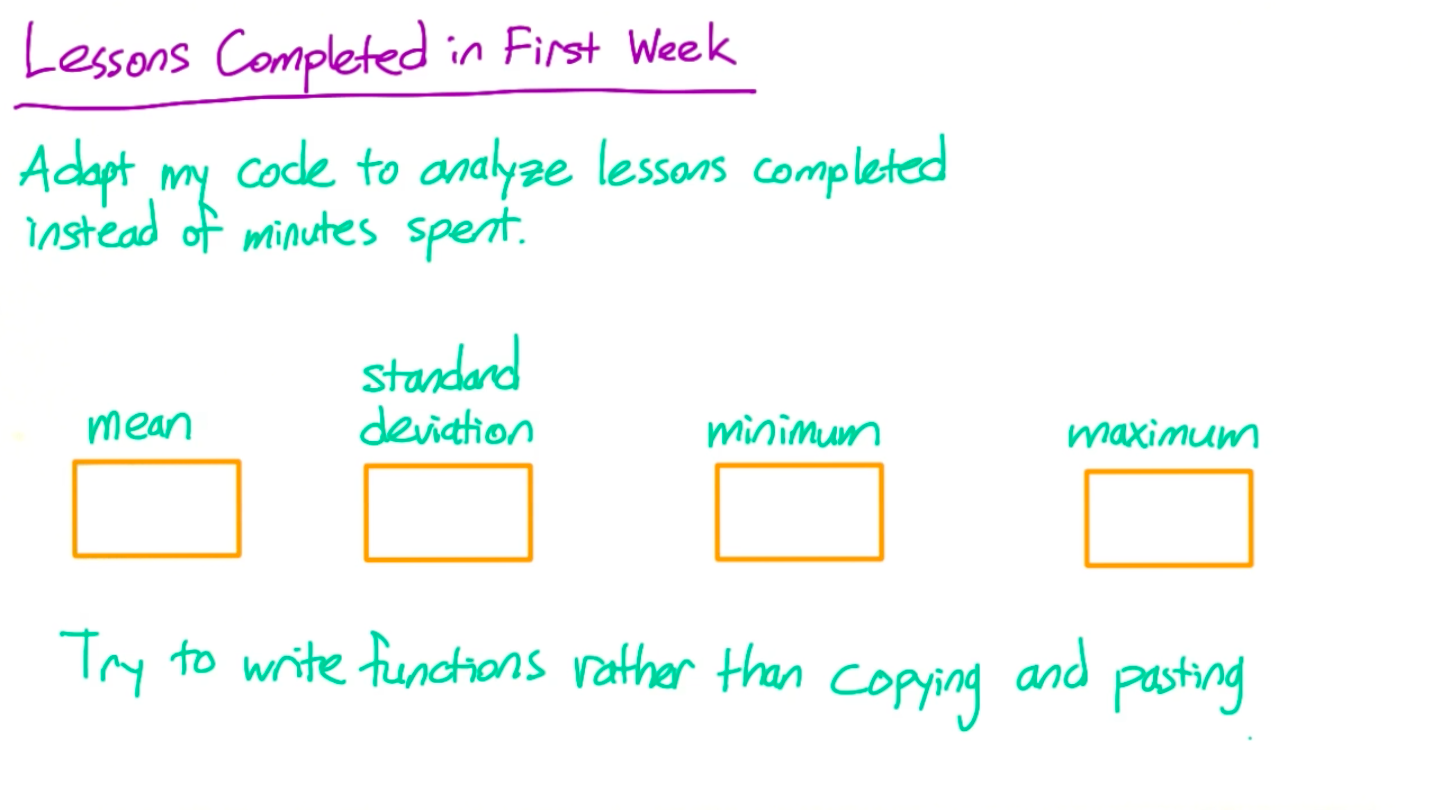 Lessons Completed in First Week
Adapt my code to analyze lessons completed
instead of minutes spent.
standard
mean deviation minimum maximum
Try to write functions rather than copying and pasting